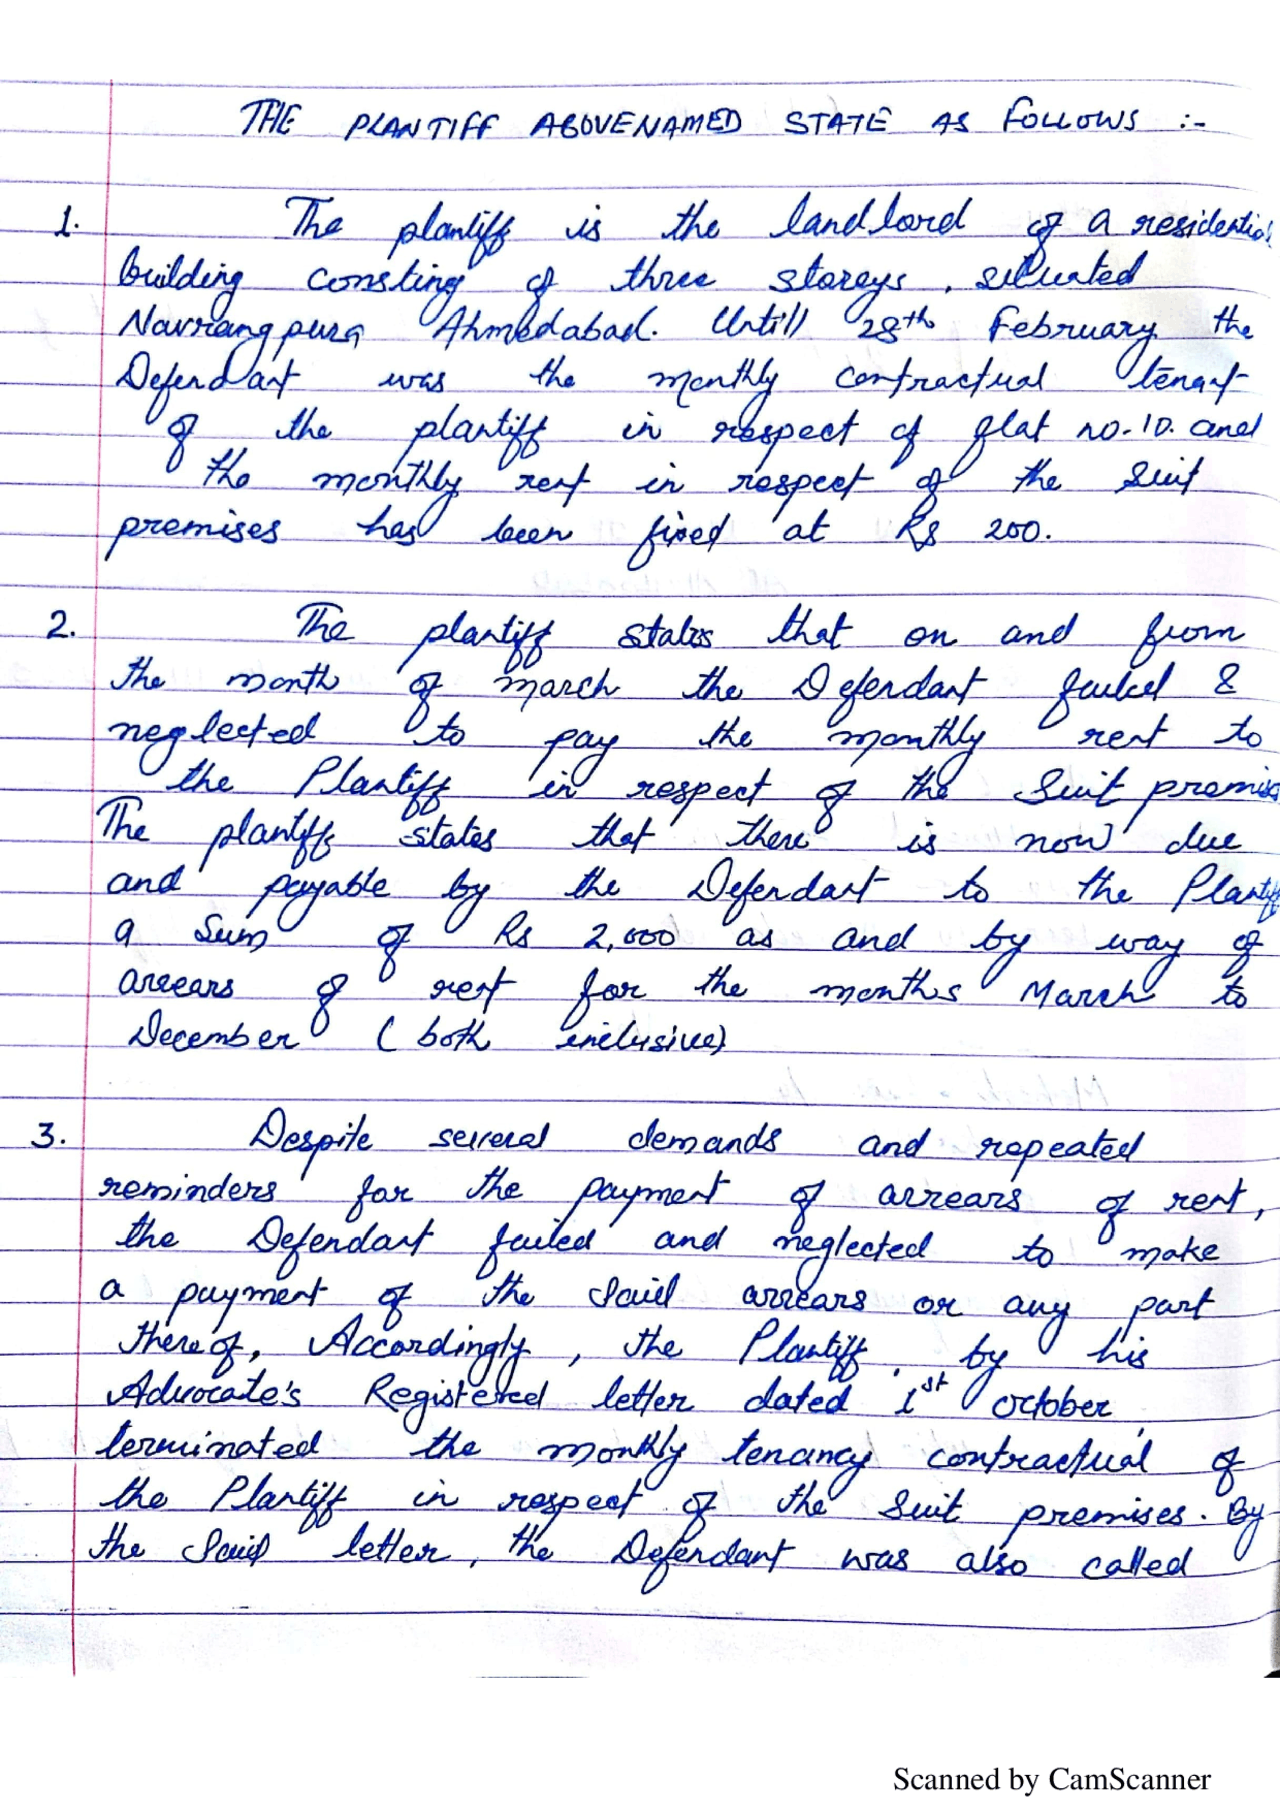 THE PLANTIFF ABOVENAMED STATE AS FOLLOWS :-
1. The plantiff is the landlord of a residential
building consting of three storeys, situated
Navrangpura Ahmedabad. Untill 28th February the
Defendant was the monthly contractual tenant
of the plantiff in respect of flat no. 10. and
the monthly rent in respect of the Suit
premises has been fixed at Rs 200.
2. The plantiff states that on and from
the month of march the Defendant failed &
neglected to pay the monthly rent to
the Plantiff in respect of the Suit premises
The plantiff states that there is now due
and payable by the Defendant to the Plantiff
a Sum of Rs 2,000 as and by way of
arrears of rent for the months March to
December (both inclusive)
3. Despite several demands and repeated
reminders for the payment of arrears of rent,
the Defendant failed and neglected to make
a payment of the said arrears or any part
thereof, Accordingly, the Plantiff, by his
Advocate's Registered letter dated 1st october,
terminated the monthly tenancy contractual of
the Plantiff in respect of the Suit premises. By
the said letter, the Defendant was also called
Scanned by CamScanner